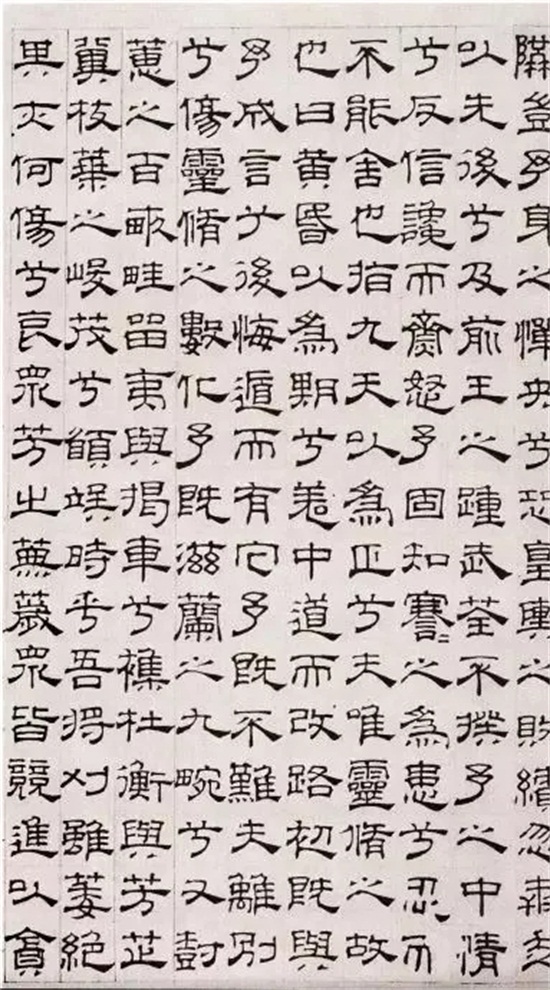 隘豈予身之憚央兮恐皇輿之敗績忽奔走
以先後兮及前王之踵武荃不揆予之中情
兮反信讒而齌怒予固知謇〻之為患兮忍而
不能舍也指九天以為正兮夫唯靈脩之故
也曰黃昏以為期兮羌中道而改路初既與
予成言兮後悔遁而有它予既不難夫離別
兮傷靈脩之數化予既滋蘭之九畹兮又樹
蕙之百畝畦留夷與揭車兮雜杜衡與芳芷
冀枝葉之峻茂兮願竢時乎吾將刈雖萎絕
其亦何傷兮哀眾芳之蕪薉眾皆競進以貪